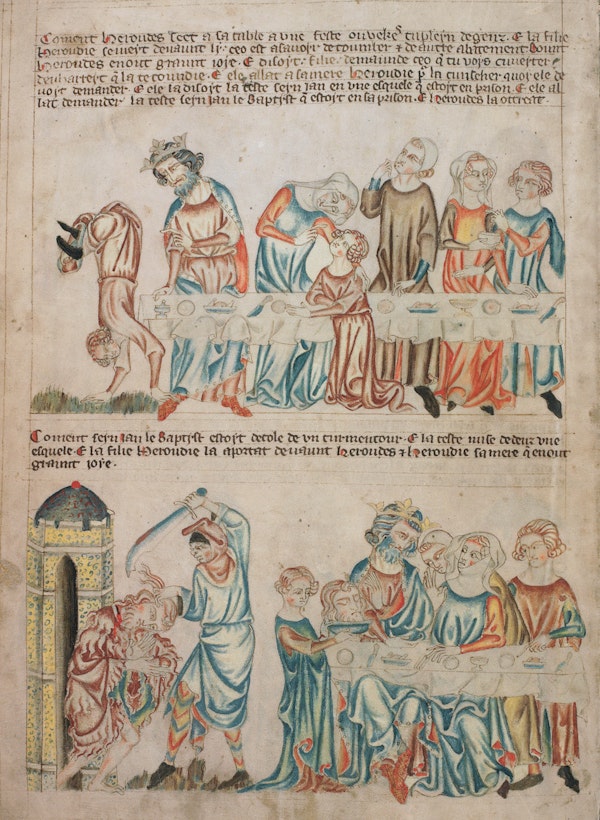 Coment Heroudes seet a sa table a une feste ou veke sun pleyn de genz. E la filie
Heroudie se meyt devaunt ly. ceo est a savoyr de toumber & de autre abatement dount
Heroudes en out graunt joye. E disoyt. filie. demaunde ceo q tu voys coveyter &
la te
E ele allat a sa mere Heroudie quoy ele de
voyt demander. E ele la disoyt la teste seyn Jan en une esquele q estoyt en prison. E ele al
lat demander la teste seyn Jan le Baptyst q estoyt en sa prison. E Heroudes la ottreat.
Coment seyn Jan le Baptyst estoyt decole de un turmentour. E la teste mise dedenz une
esquele. E la filie Heroudie la aportat devaunt Heroudes & Heroudie sa mere q en out
graunt joye.